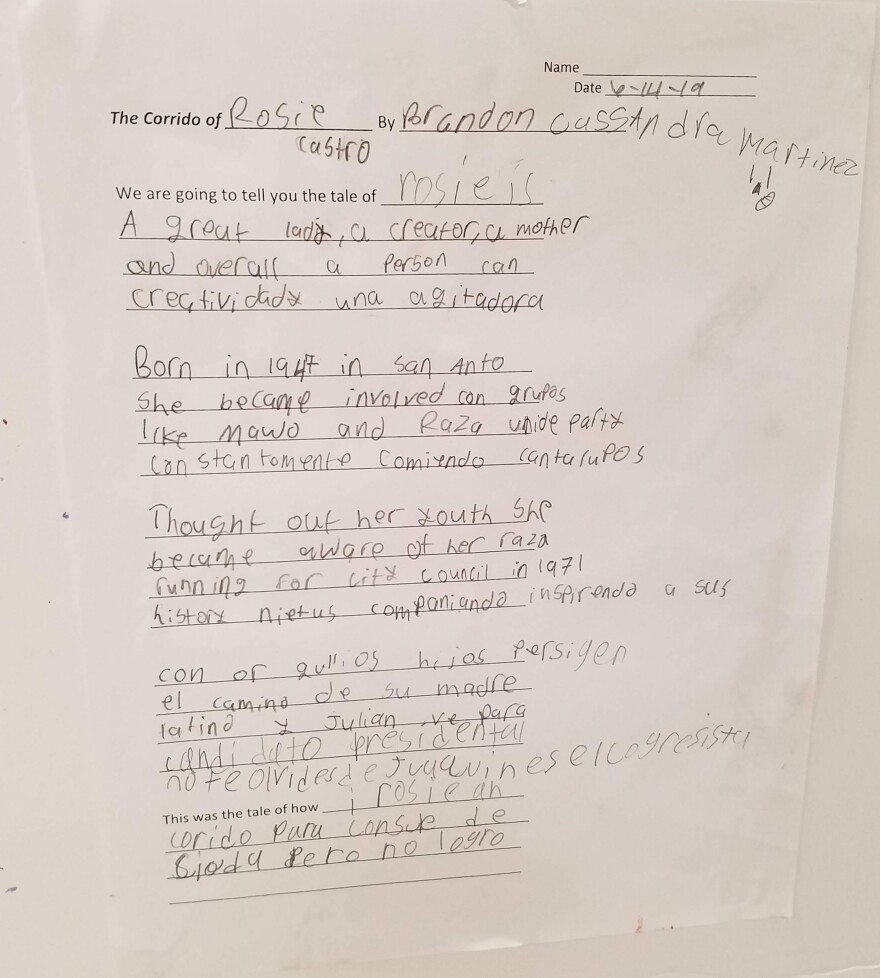 Name
Date 6-14-19
The Corrido of Rosie Castro By Brandon CassAndra Martinez
We are going to tell you the tale of rosie is
A great lady, a creator, a mother
and overall a Person can
creatividady una agitadora
Born in 1947 in San Anto
She became involved con grupos
like mawo and Raza unide party
constantomente comiendo cantalupos
Thought out her youth she
became aware of her raza
running for city council in 1971
history nietus companiando inspirendo a sus
con orgullios hijas Persigen
el camino de su madre
latino y Julian, ve para
candidato presidental
no te olvides de Juaquin es el cogresista
This was the tale of how rosie an
corido para conse de
pero no logro